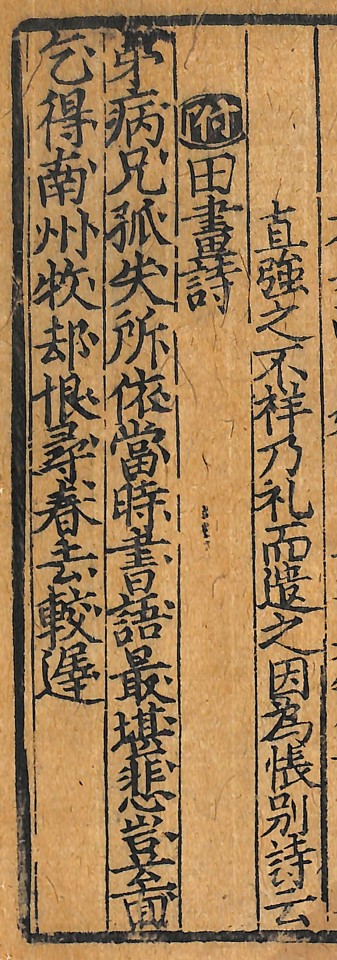 直強之不祥乃礼而遣之因為悵別詩云
附田畫詩
弟病兄孤失所依當時書語最堪悲豈啚
乞得南州牧却恨尋春去較遲